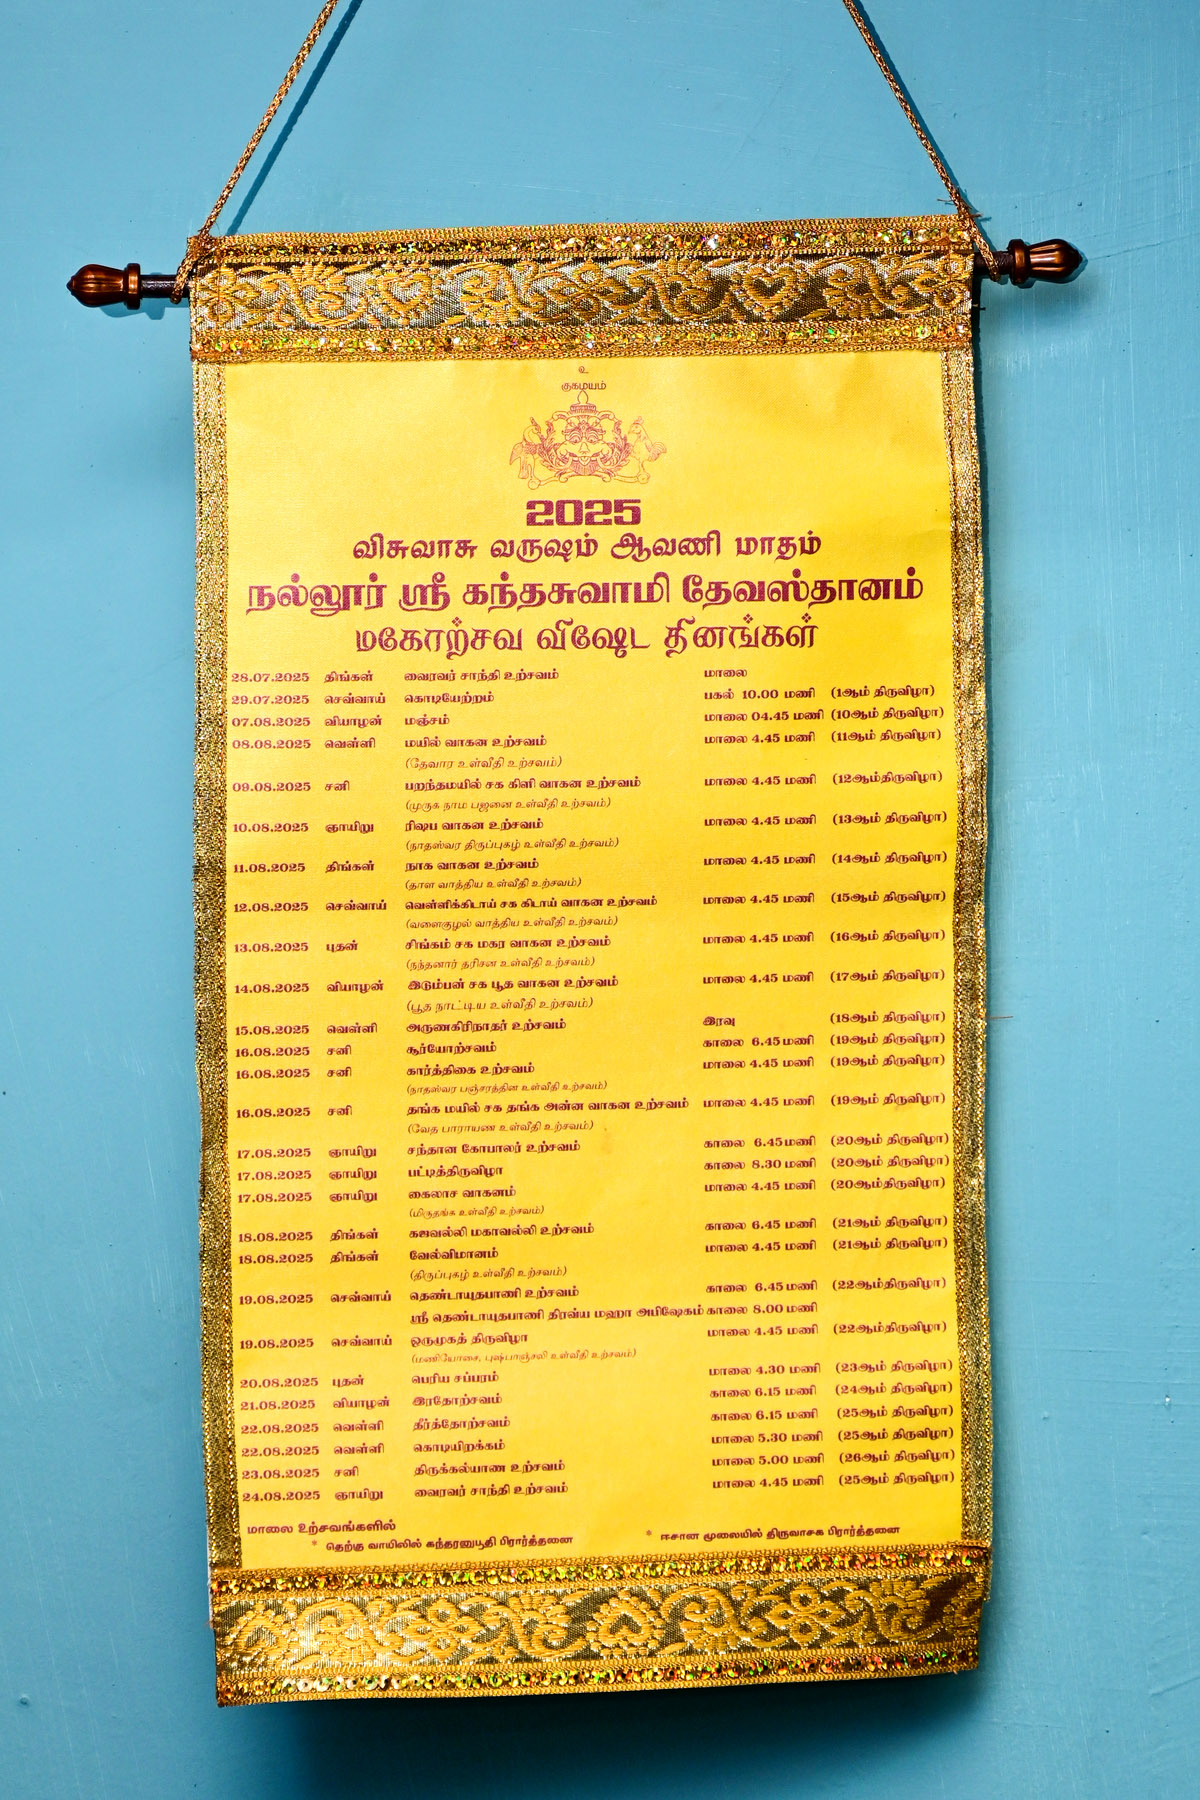 உ
குகமயம்
2025
விசுவாசு வருஷம் ஆவணி மாதம்
நல்லூர் ஸ்ரீ கந்தசுவாமி தேவஸ்தானம்
மகோற்சவ விஷேட தினங்கள்
28.07.2025 திங்கள் வைரவர் சாந்தி உற்சவம் மாலை
29.07.2025 செவ்வாய் கொடியேற்றம் பகல் 10.00 மணி (1ஆம் திருவிழா)
07.08.2025 வியாழன் மஞ்சம் மாலை 04.45 மணி (10ஆம் திருவிழா)
08.08.2025 வெள்ளி மயில் வாகன உற்சவம் மாலை 4.45 மணி (11ஆம் திருவிழா)
(தேவார உள்வீதி உற்சவம்)
09.08.2025 சனி பறந்தமயில் சக கிளி வாகன உற்சவம் மாலை 4.45 மணி (12ஆம்திருவிழா)
(முருக நாம பஜனை உள்வீதி உற்சவம்)
10.08.2025 ஞாயிறு ரிஷப வாகன உற்சவம் மாலை 4.45 மணி (13ஆம் திருவிழா)
(நாதஸ்வர திருப்புகழ் உள்வீதி உற்சவம்)
11.08.2025 திங்கள் நாக வாகன உற்சவம் மாலை 4.45 மணி (14ஆம் திருவிழா)
(தாள வாத்திய உள்வீதி உற்சவம்)
12.08.2025 செவ்வாய் வெள்ளிக்கிடாய் சக கிடாய் வாகன உற்சவம் மாலை 4.45 மணி (15ஆம் திருவிழா)
(வளைகுழல் வாத்திய உள்வீதி உற்சவம்)
13.08.2025 புதன் சிங்கம் சக மகர வாகன உற்சவம் மாலை 4.45 மணி (16ஆம் திருவிழா)
(நந்தனார் தரிசன உள்வீதி உற்சவம்)
14.08.2025 வியாழன் இடும்பன் சக பூத வாகன உற்சவம் மாலை 4.45 மணி (17ஆம் திருவிழா)
(பூத நாட்டிய உள்வீதி உற்சவம்)
15.08.2025 வெள்ளி அருணகிரிநாதர் உற்சவம் இரவு (18ஆம் திருவிழா)
16.08.2025 சனி சூர்யோற்சவம் காலை 6.45மணி (19ஆம் திருவிழா)
16.08.2025 சனி கார்த்திகை உற்சவம் மாலை 4.45 மணி (19ஆம் திருவிழா)
(நாதஸ்வர பஞ்சரத்தின உள்வீதி உற்சவம்)
16.08.2025 சனி தங்க மயில் சக தங்க அன்ன வாகன உற்சவம் மாலை 4.45 மணி (19ஆம் திருவிழா)
(வேத பாராயண உள்வீதி உற்சவம்)
17.08.2025 ஞாயிறு சந்தான கோபாலர் உற்சவம் காலை 6.45மணி (20ஆம் திருவிழா)
17.08.2025 ஞாயிறு பட்டித்திருவிழா காலை 8.30 மணி (20ஆம் திருவிழா)
17.08.2025 ஞாயிறு கைலாச வாகனம் மாலை 4.45 மணி (20ஆம்திருவிழா)
(மிருதங்க உள்வீதி உற்சவம்)
18.08.2025 திங்கள் கஜவல்லி மகாவல்லி உற்சவம் காலை 6.45 மணி (21ஆம் திருவிழா)
18.08.2025 திங்கள் வேல்விமானம் மாலை 4.45 மணி (21ஆம் திருவிழா)
(திருப்புகழ் உள்வீதி உற்சவம்)
19.08.2025 செவ்வாய் தெண்டாயுதபாணி உற்சவம் காலை 6.45 மணி (22ஆம்திருவிழா)
ஸ்ரீ தெண்டாயுதபாணி திரவ்ய மஹா அபிஷேகம் காலை 8.00 மணி
19.08.2025 செவ்வாய் ஒருமுகத் திருவிழா மாலை 4.45 மணி (22ஆம்திருவிழா)
(மணியோசை, புஷ்பாஞ்சலி உள்வீதி உற்சவம்)
20.08.2025 புதன் பெரிய சப்பரம் மாலை 4.30 மணி (23ஆம் திருவிழா)
21.08.2025 வியாழன் இரதோற்சவம் காலை 6.15 மணி (24ஆம் திருவிழா)
22.08.2025 வெள்ளி தீர்த்தோற்சவம் காலை 6.15 மணி (25ஆம் திருவிழா)
22.08.2025 வெள்ளி கொடியிறக்கம் மாலை 5.30 மணி (25ஆம் திருவிழா)
23.08.2025 சனி திருக்கல்யாண உற்சவம் மாலை 5.00 மணி (26ஆம் திருவிழா)
24.08.2025 ஞாயிறு வைரவர் சாந்தி உற்சவம் மாலை 4.45 மணி (25ஆம் திருவிழா)
மாலை உற்சவங்களில்
* தெற்கு வாயிலில் கந்தரனுபூதி பிரார்த்தனை * ஈசான மூலையில் திருவாசக பிரார்த்தனை